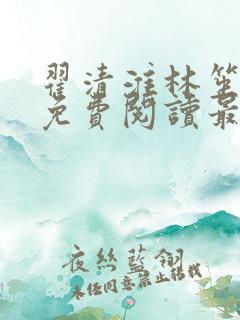 翟清淮林笙
免費閱讀最
夜絲藍翎
未經同意禁止轉載